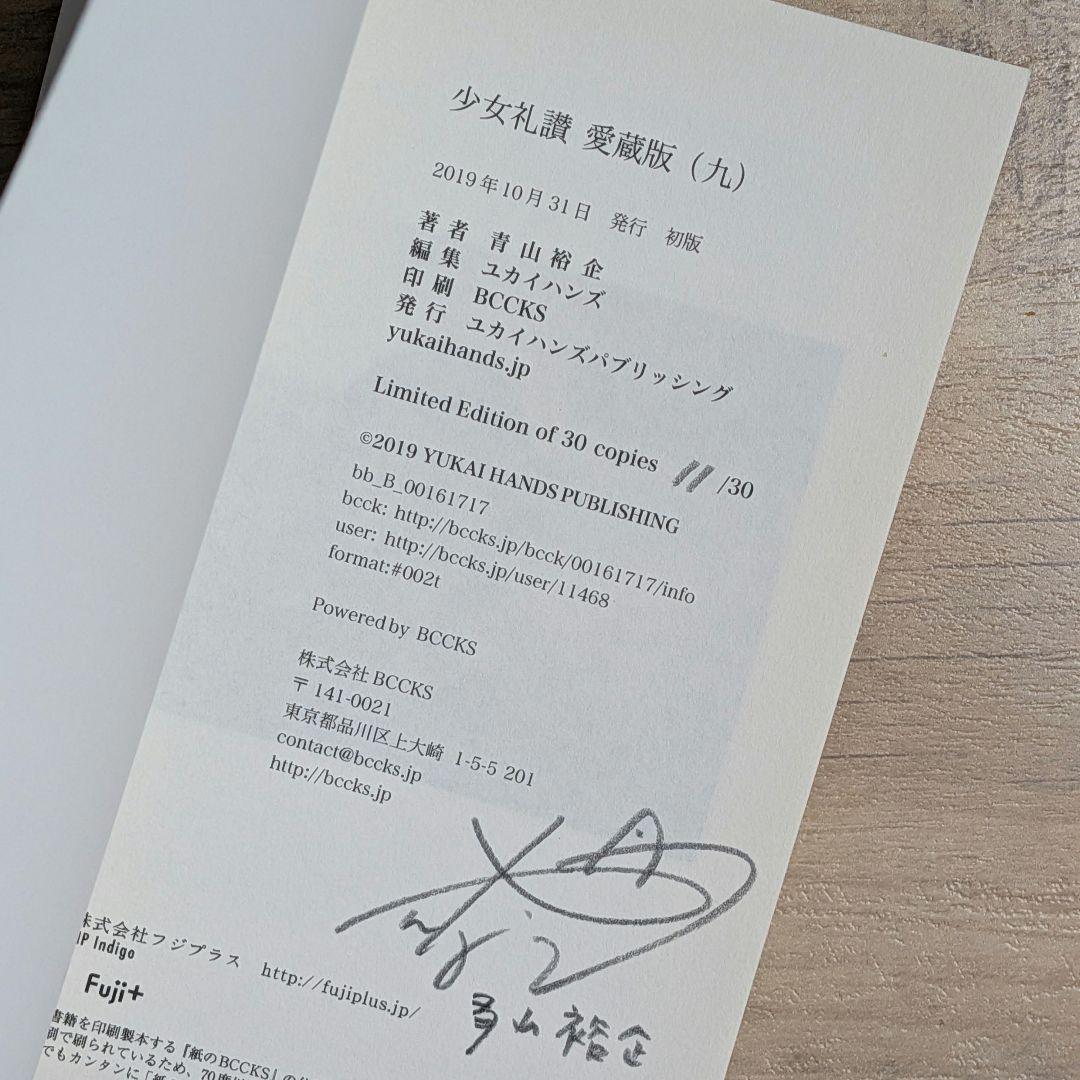 少女礼讃 愛蔵版（九）
2019年10月31日 発行 初版
著者 青山裕企
編集 ユカイハンズ
印刷 BCCKS
発行 ユカイハンズパブリッシング
yukaihands.jp
Limited Edition of 30 copies 11/30
©2019 YUKAI HANDS PUBLISHING
bb_B_00161717
bcck: http://bccks.jp/bcck/00161717/info
user: http://bccks.jp/user/11468
format:#002t
Powered by BCCKS
株式会社BCCKS
〒141-0021
東京都品川区上大崎 1-5-5 201
contact@bccks.jp
http://bccks.jp
株式会社フジプラス http://fujiplus.jp/
HP Indigo
Fuji+
青山裕企
書籍を印刷製本する『紙のBCCKS』の
刷で刷られているため、70度
でもカンタンに「紙